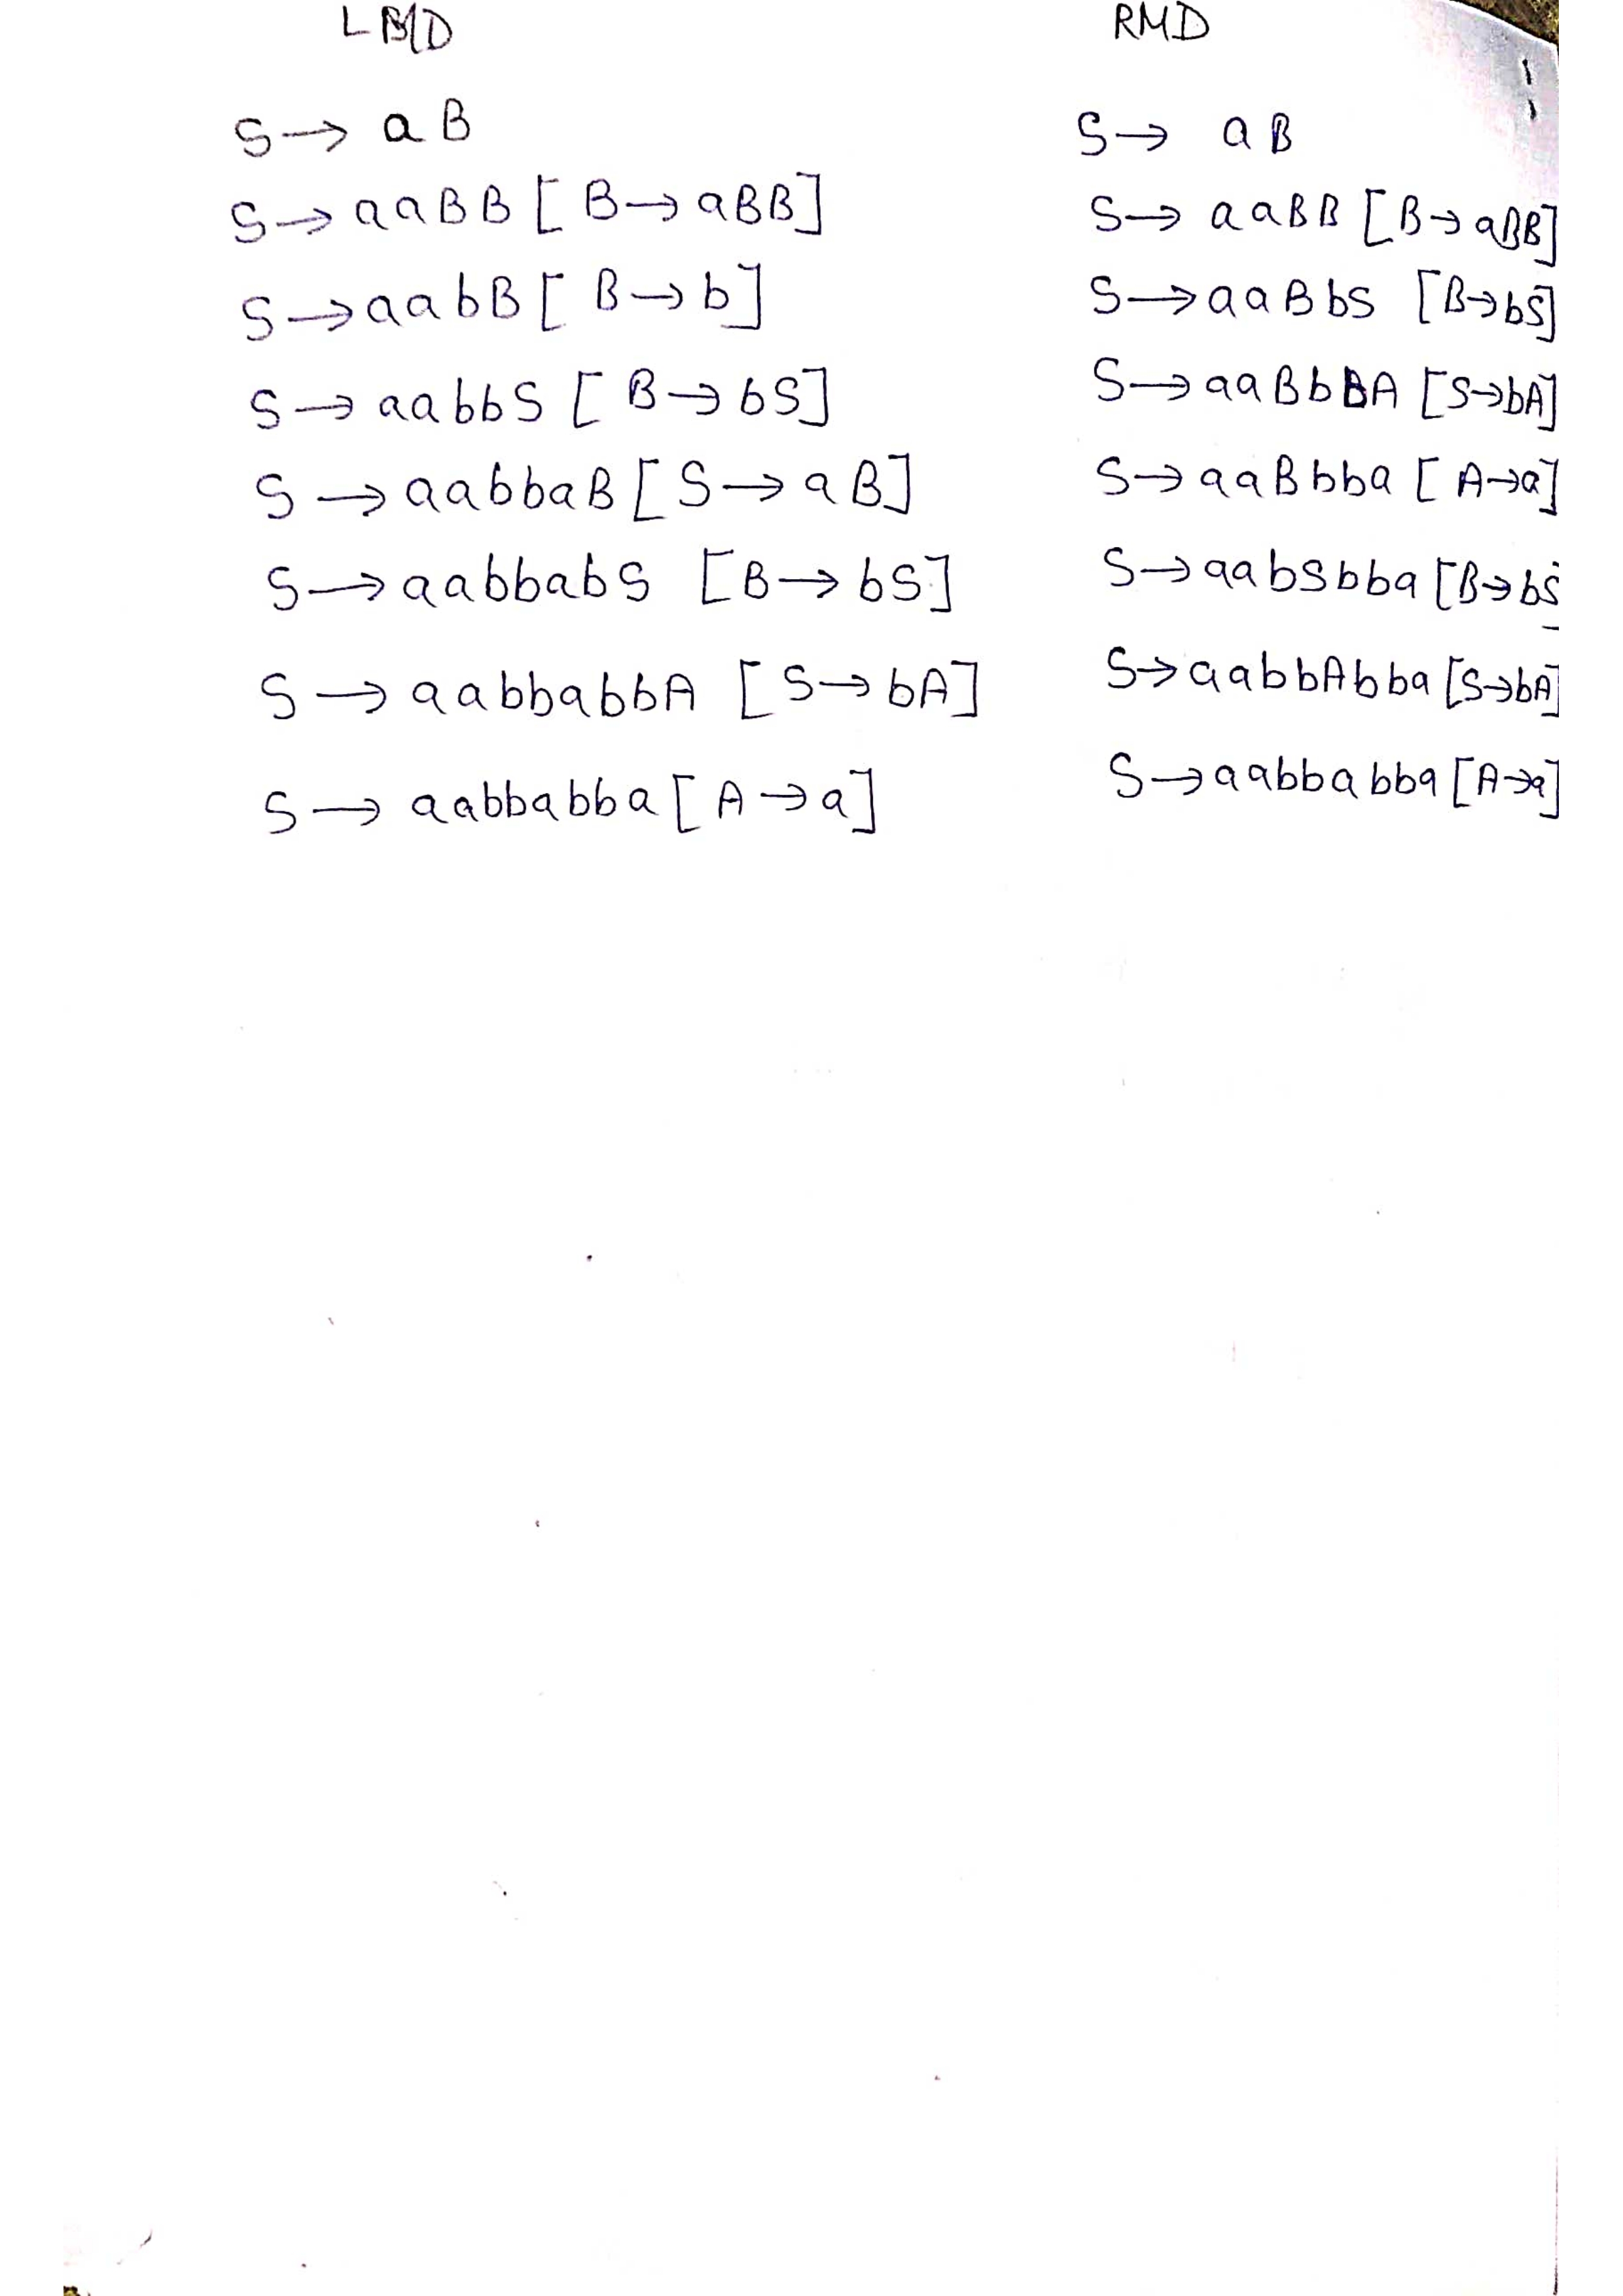 LMD
S → aB
S → aaBB [B → aBB]
S → aabB [B → b]
S → aabbS [B → bS]
S → aabbaB [S → aB]
S → aabbabS [B → bS]
S → aabbabbA [S → bA]
S → aabbabba [A → a]
RMD
S → aB
S → aaBB [B → aBB]
S → aaBbS [B → bS]
S → aaBbbA [S → bA]
S → aaBbba [A → a]
S → aabSbba [B → bS
S → aabbAbba [S → bA]
S → aabbabba [A → a]